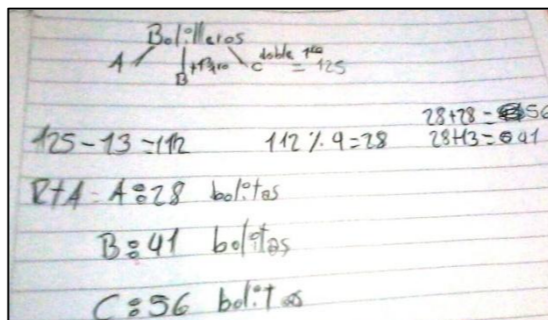 Bolilleros
A B +13 1ro C doble 1ro = 125
28+28=56
125-13=112 112%4=28 28+13=41
RTA: A: 28 bolitas
B: 41 bolitas
C: 56 bolitas